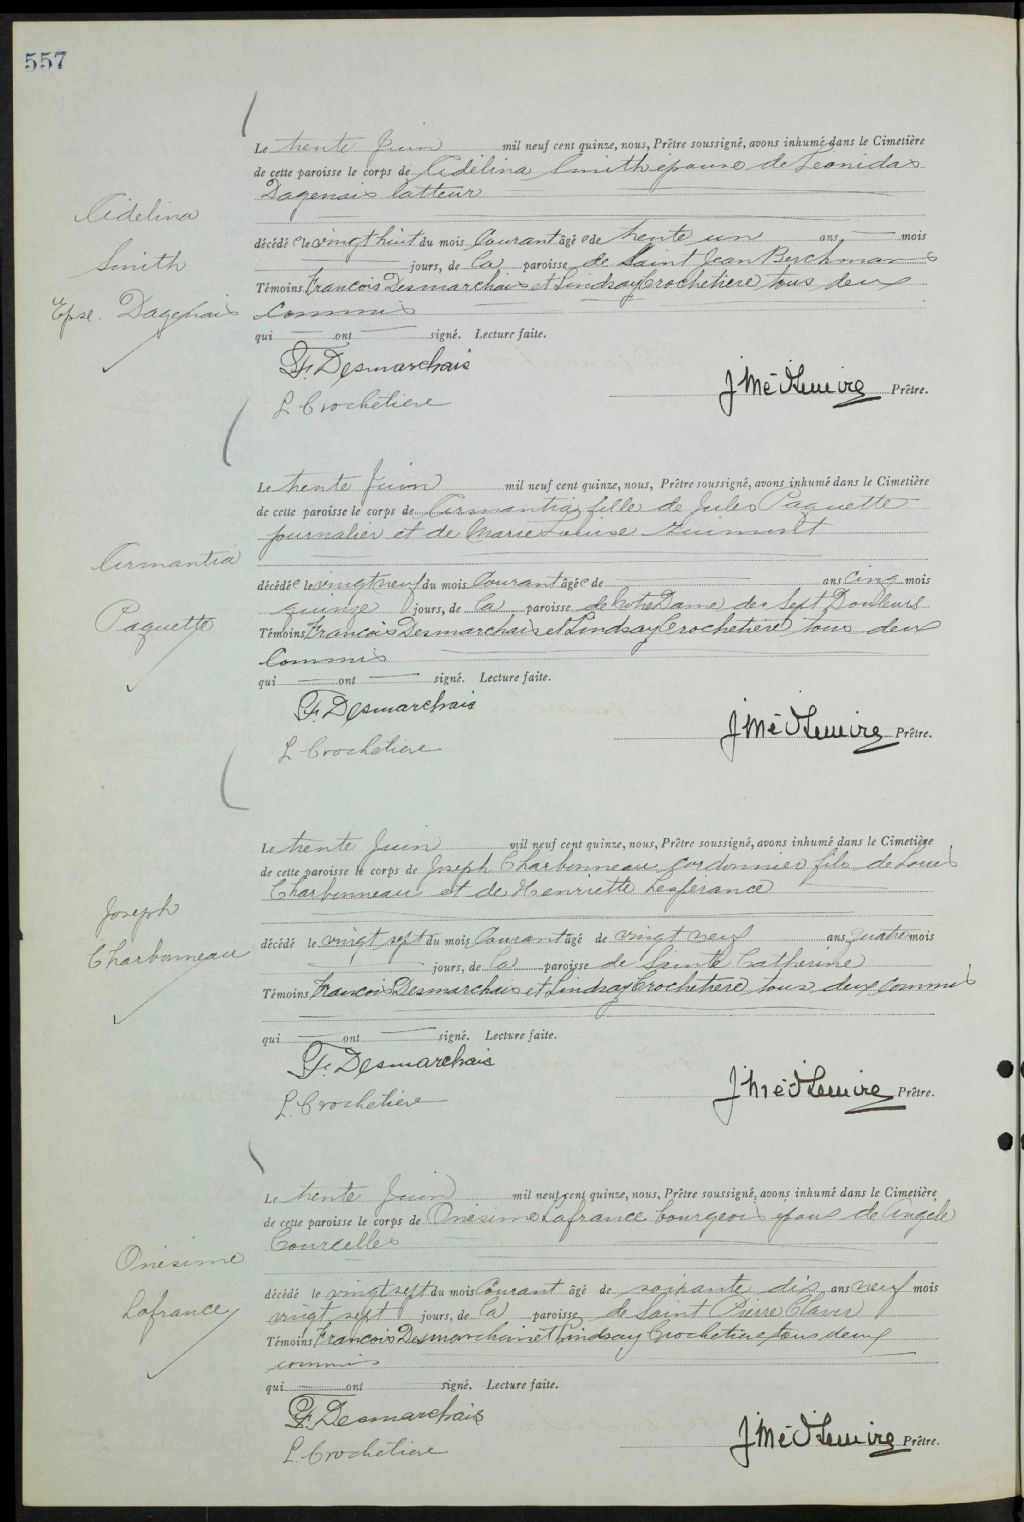 557
Le trente Juin mil neuf cent quinze, nous, Prêtre soussigné, avons inhumé dans le Cimetière
de cette paroisse le corps de Adélina Smith épouse de Léonidas
Dagenais latteur
Adelina
Smith
Epse. Dagenais
décédée le vingt huit du mois Courant âgée de trente un ans — mois
jours, de la paroisse de Saint Jean Berchmans
Témoins Francois Desmarchais et Lindsay Crochetiere tous deux
Commis
qui — ont — signé. Lecture faite.
F. Desmarchais
J Mé O Lemire Prêtre.
L. Crochetiere
Le trente Juin mil neuf cent quinze, nous, Prêtre soussigné, avons inhumé dans le Cimetière
de cette paroisse le corps de Armantia fille de Jules Paquette
journalier et de Marie Louise
Armantia
Paquette
décédée le vingt neuf du mois Courant âgée de — ans cinq mois
quinze jours, de la paroisse de Notre Dame des Sept Douleurs
Témoins Francois Desmarchais et Lindsay Crochetiere tous deux
Commis
qui — ont — signé. Lecture faite.
F. Desmarchais
J Mé O Lemire Prêtre.
L. Crochetiere
Le trente Juin mil neuf cent quinze, nous, Prêtre soussigné, avons inhumé dans le Cimetière
de cette paroisse le corps de Joseph Charbonneau cordonnier fils de Louis
Charbonneau et de Henriette Lesperance
Joseph
Charbonneau
décédé le vingt sept du mois Courant âgé de vingt neuf ans quatre mois
jours, de la paroisse de Sainte Catherine
Témoins Francois Desmarchais et Lindsay Crochetiere tous deux commis
qui — ont — signé. Lecture faite.
F. Desmarchais
J Mé O Lemire Prêtre.
L. Crochetiere
Le trente Juin mil neuf cent quinze, nous, Prêtre soussigné, avons inhumé dans le Cimetière
de cette paroisse le corps de Onésime Lafrance bourgeois epoux de Angèle
Courcelles
Onésime
Lafrance
décédé le vingt sept du mois Courant âgé de soixante dix ans neuf mois
vingt sept jours, de la paroisse de Saint Pierre Claver
Témoins Francois Desmarchais et Lindsay Crochetiere tous deux
commis
qui — ont signé. Lecture faite.
F. Desmarchais
J Mé O Lemire Prêtre.
L. Crochetiere